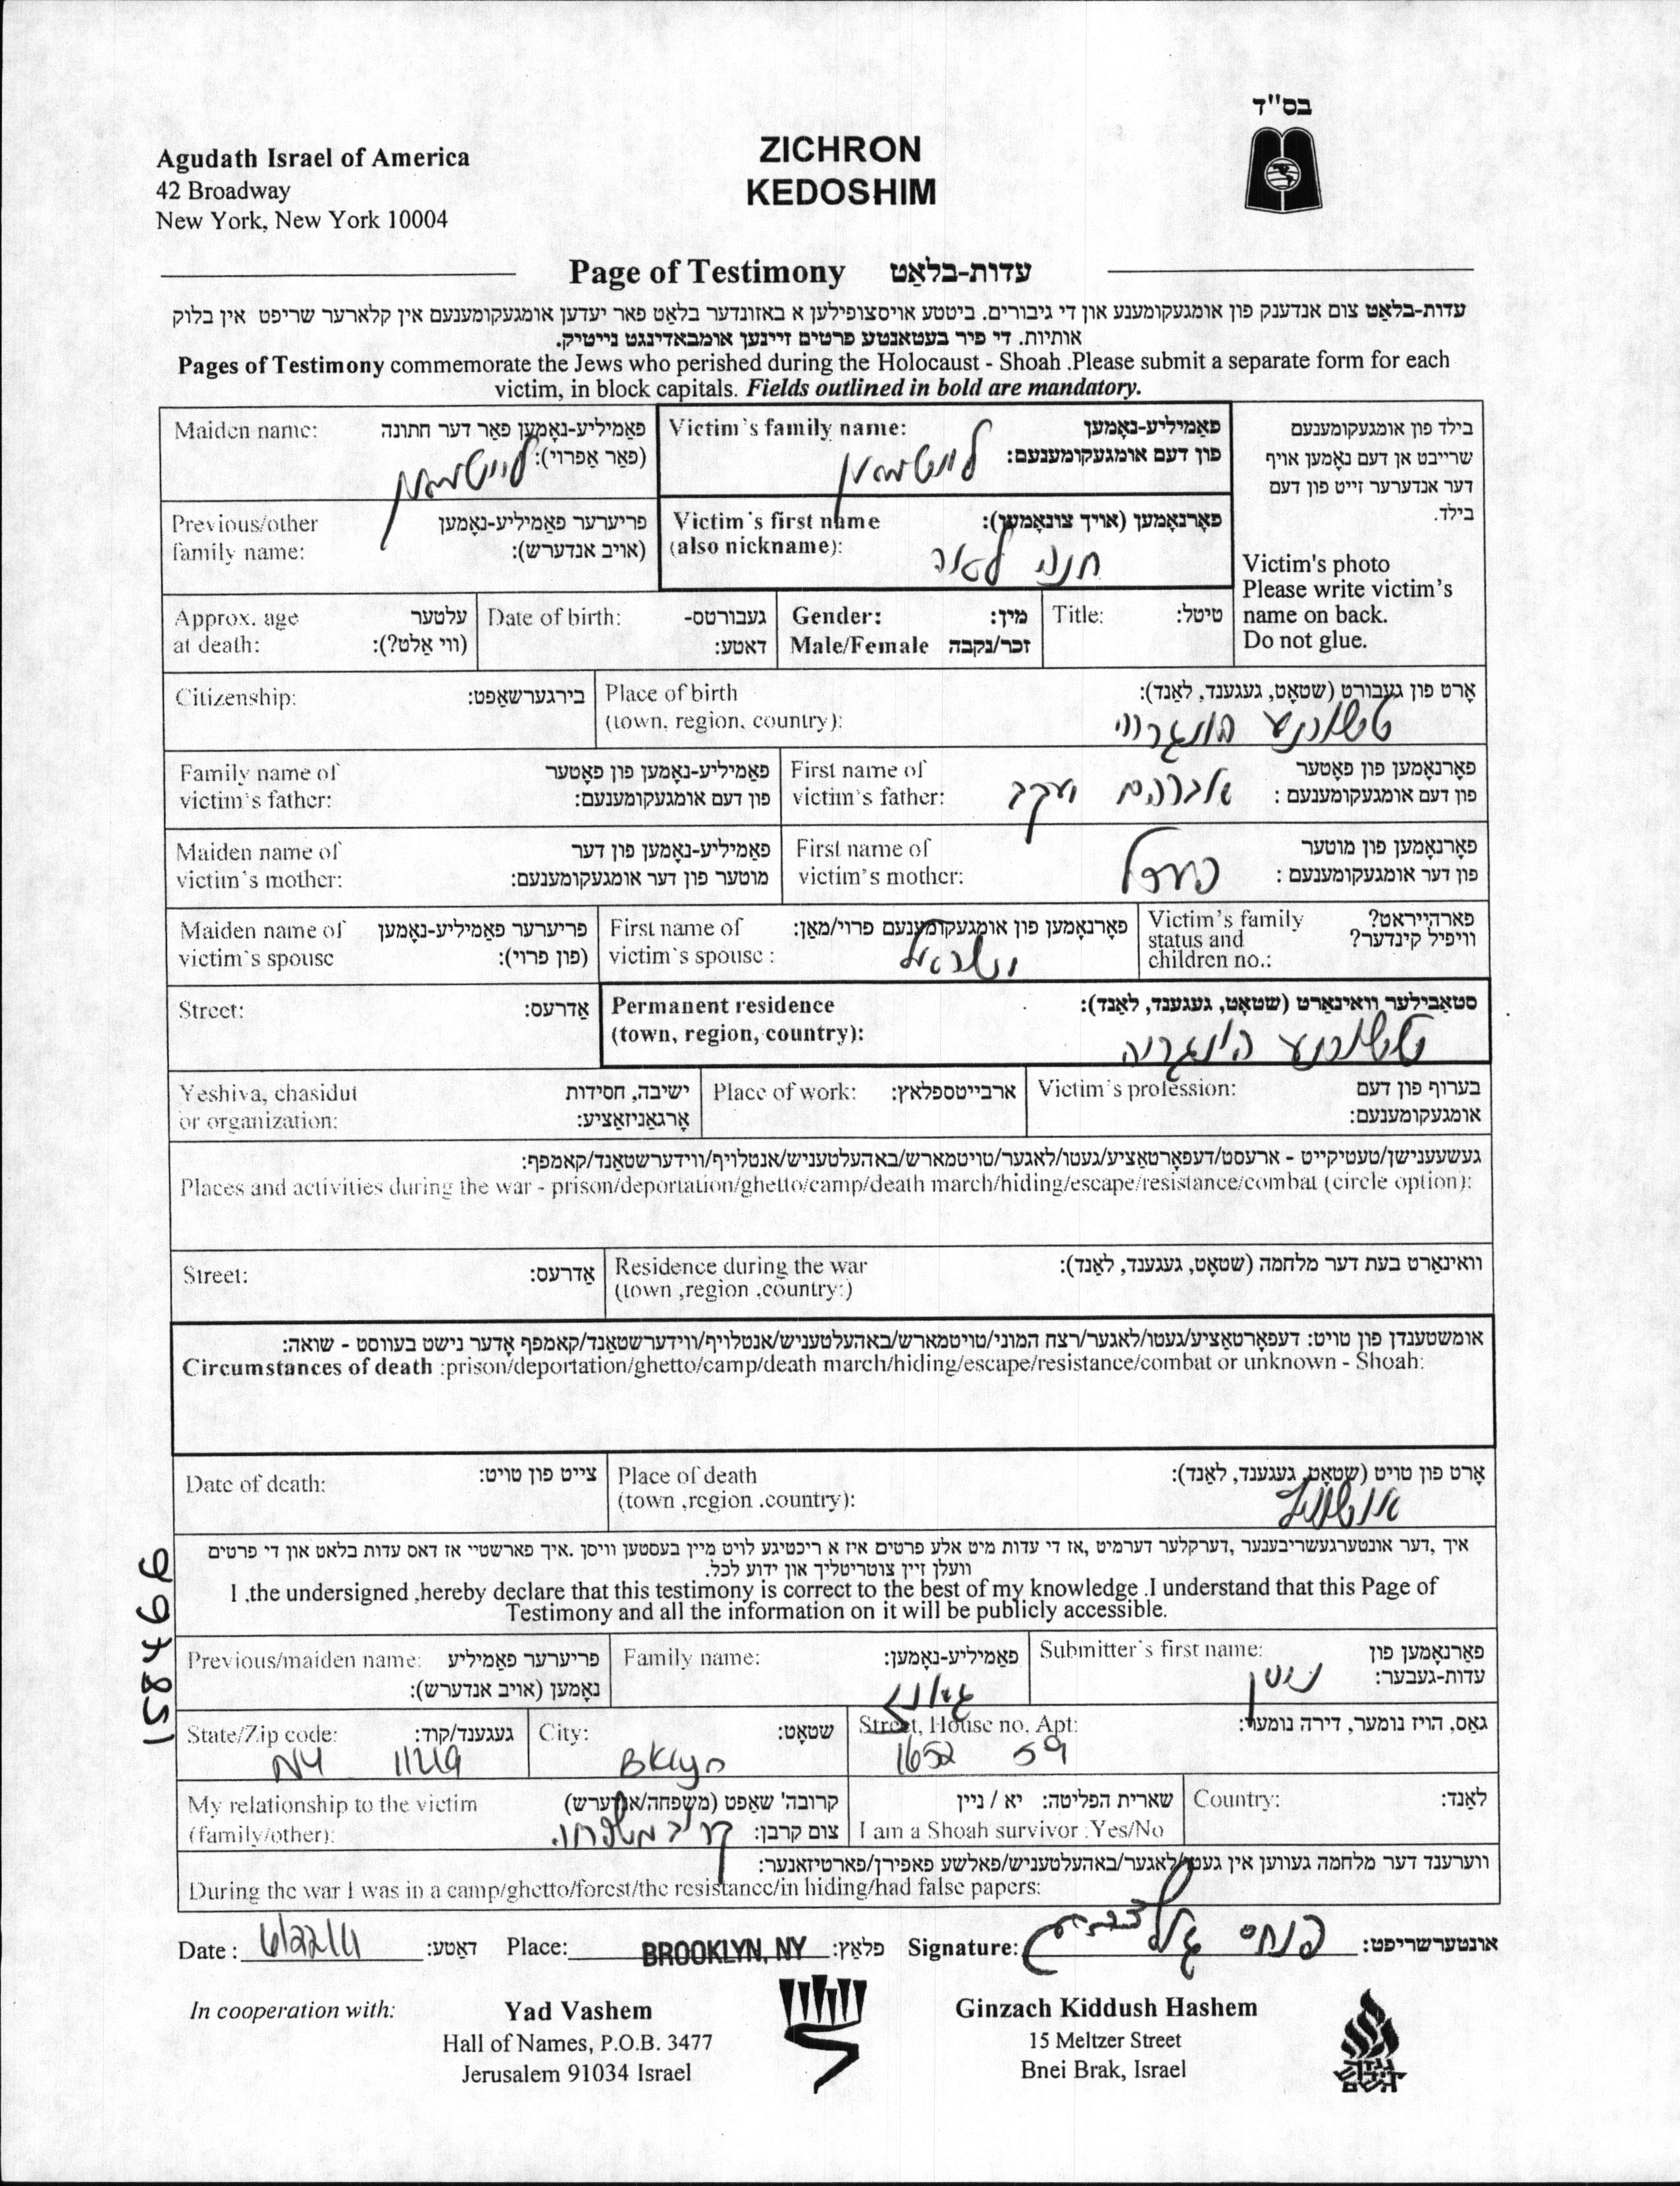 בס"ד
Agudath Israel of America
42 Broadway
New York, New York 10004
ZICHRON
KEDOSHIM
Page of Testimony עדות-בלאַט
עדות-בלאַט צום אנדענק פון אומגעקומענע און די גיבורים. ביטטע אויסצופילען א באזונדער בלאַט פאר יעדען אומגעקומענעם אין קלארער שריפט אין בלוק
אותיות. די פיר בעטאנטע פרטים זיינען אומבאדינגט נייטיק.
Pages of Testimony commemorate the Jews who perished during the Holocaust - Shoah .Please submit a separate form for each
victim, in block capitals. Fields outlined in bold are mandatory.
Maiden name: פאַמיליע-נאָמען פאַר דער חתונה
(פאַר אַפרוי): לייטמאן
Victim's family name: פאַמיליע-נאָמען
פון דעם אומגעקומענעם: לויטמאן
בילד פון אומגעקומענעם
שרייבט אן דעם נאָמען אויף
דער אנדערער זייט פון דעם
בילד.
Victim's photo
Please write victim's
name on back.
Do not glue.
Previous/other פריערער פאַמיליע-נאָמען
family name: (אויב אנדערש):
Victim's first name פאָרנאָמען (אויך צונאָמען):
(also nickname): חנה לאה
Approx. age עלטער
at death: (ווי אַלט?):
Date of birth: געבורטס-
דאטע:
Gender: מין:
Male/Female זכר/נקבה
Title: טיטל:
Citizenship: בירגערשאַפט:
Place of birth אָרט פון געבורט (שטאָט, געגענד, לאַנד):
(town, region, country): טשארנע
Family name of פאַמיליע-נאָמען פון פאָטער
victim's father: פון דעם אומגעקומענעם:
First name of פאָרנאָמען פון פאָטער
victim's father: פון דעם אומגעקומענעם : אברהם יעקב
Maiden name of פאַמיליע-נאָמען פון דער
victim's mother: מוטער פון דער אומגעקומענעם:
First name of פאָרנאָמען פון מוטער
victim's mother: פון דער אומגעקומענעם :
Maiden name of פריערער פאַמיליע-נאָמען
victim's spouse (פון פרוי):
First name of פאָרנאָמען פון אומגעקומענעם פרוי/מאַן:
victim's spouse : ישראל
Victim's family פארהייראט?
status and וויפיל קינדער?
children no.:
Street: אַדרעס:
Permanent residence סטאַבילער וואינאַרט (שטאָט, געגענד, לאַנד):
(town, region, country): טשארנע הונגריה
Yeshiva, chasidut ישיבה, חסידות
or organization: אָרגאַניזאַציע:
Place of work: ארבייטספלאץ:
Victim's profession: בערוף פון דעם
אומגעקומענעם:
געשעענישן/טעטיקייט - ארעסט/דעפאָרטאַציע/געטו/לאגער/טויטמארש/באהעלטעניש/אנטלויף/ווידערשטאַנד/קאמפף:
Places and activities during the war - prison/deportation/ghetto/camp/death march/hiding/escape/resistance/combat (circle option):
Street: אַדרעס:
Residence during the war וואינאַרט בעת דער מלחמה (שטאָט, געגענד, לאַנד):
(town ,region ,country:)
אומשטענדן פון טויט: דעפאָרטאַציע/געטו/לאגער/רצח המוני/טויטמארש/באהעלטעניש/אנטלויף/ווידערשטאַנד/קאמפף אָדער נישט בעוואוסט - שואה:
Circumstances of death :prison/deportation/ghetto/camp/death march/hiding/escape/resistance/combat or unknown - Shoah:
Date of death: צייט פון טויט:
Place of death אָרט פון טויט (שטאָט, געגענד, לאַנד):
(town ,region .country):
איך ,דער אונטערגעשריבענער ,דערקלער דערמיט ,אז די עדות מיט אלע פרטים איז א ריכטיגע לויט מיין בעסטען וויסן .איך פארשטיי אז דאס עדות בלאט און די פרטים
וועלן זיין צוטריטליך און ידוע לכל.
I ,the undersigned ,hereby declare that this testimony is correct to the best of my knowledge .I understand that this Page of
Testimony and all the information on it will be publicly accessible.
Previous/maiden name: פריערער פאַמיליע
נאָמען (אויב אנדערש):
Family name: פאַמיליע-נאָמען:
Submitter's first name: פארנאָמען פון
עדות-געבער:
State/Zip code: געגענד/קוד:
NY 11219
City: שטאָט:
Bklyn
Street, House no, Apt: גאַס, הויז נומער, דירה נומער:
1652 59
My relationship to the victim קרובה' שאַפט (משפחה/אנדערש)
(family/other): צום קרבן: קרוב משפחה
שארית הפליטה: יא / ניין
I am a Shoah survivor :Yes/No
Country: לאַנד:
ווערענד דער מלחמה געווען אין געטו/לאגער/באהעלטעניש/פאלשע פאפירן/פארטיזאנער:
During the war I was in a camp/ghetto/forest/the resistance/in hiding/had false papers:
Date : 6/22/11 דאַטע: Place: BROOKLYN, NY פלאַץ: Signature: פנחס אונטערשריפט:
In cooperation with:
Yad Vashem
Hall of Names, P.O.B. 3477
Jerusalem 91034 Israel
Ginzach Kiddush Hashem
15 Meltzer Street
Bnei Brak, Israel